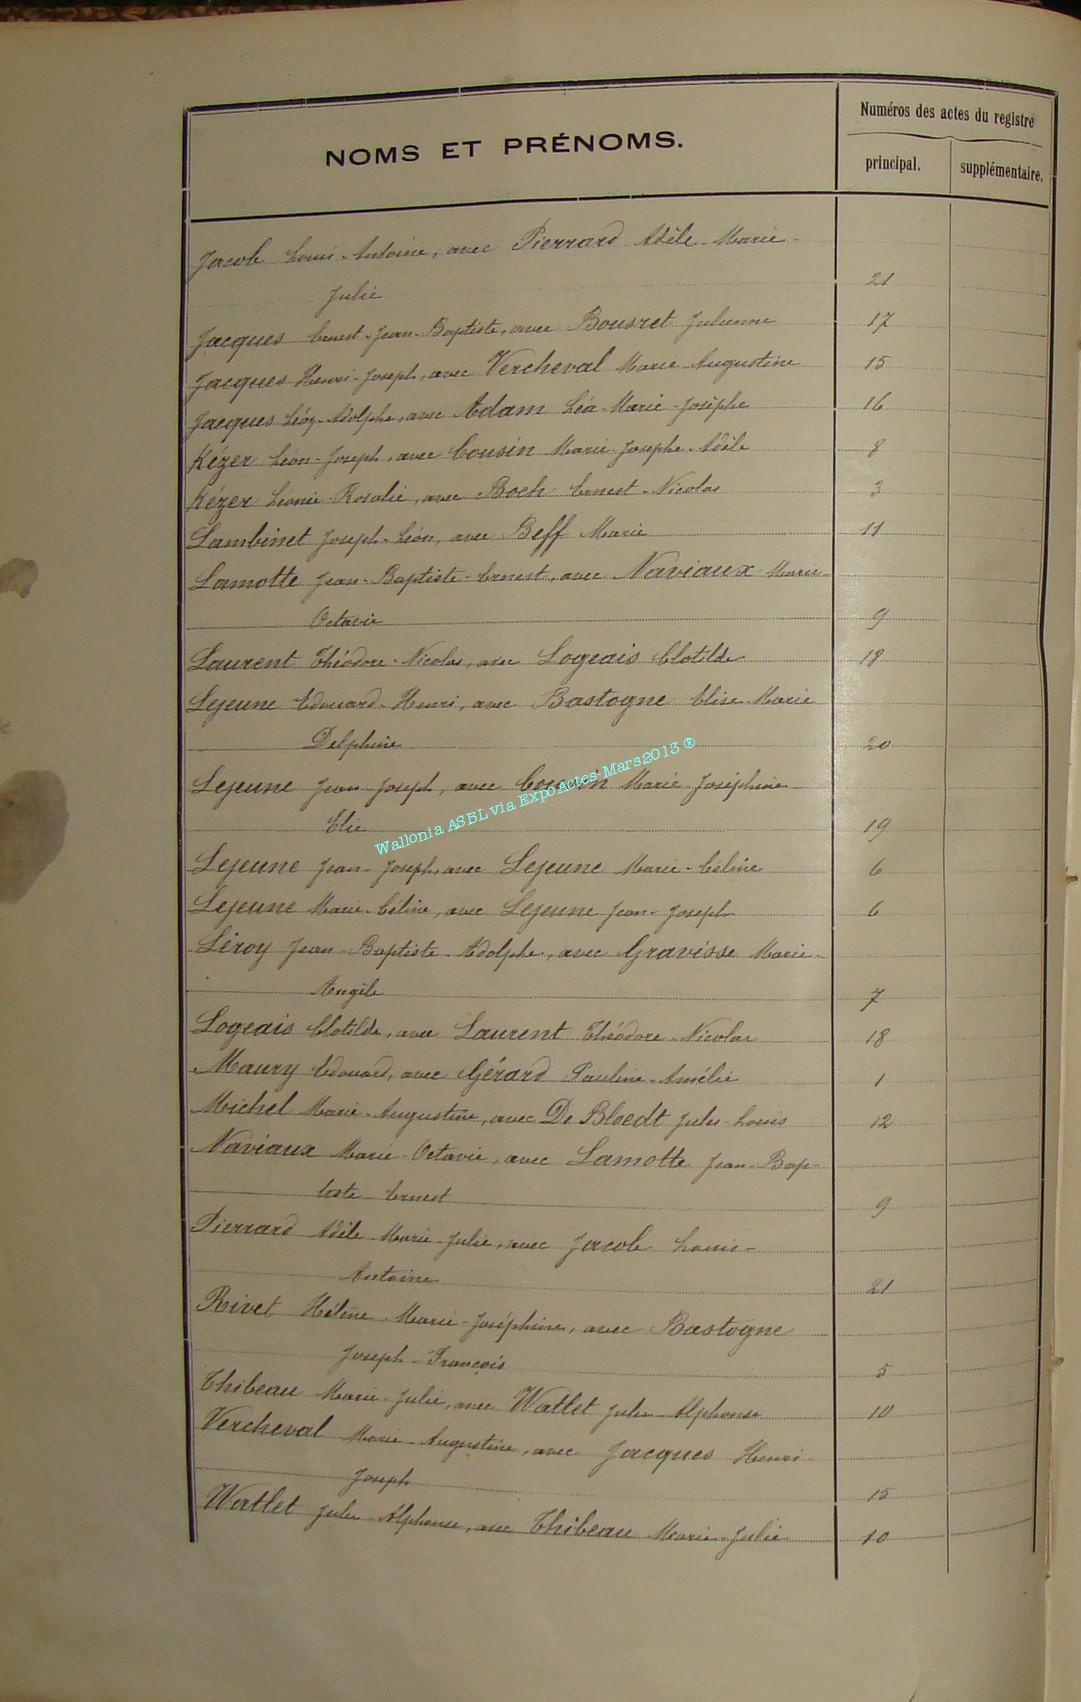 NOMS ET PRÉNOMS.
Numéros des actes du registre
principal.
supplémentaire.
Jacob Louis-Antoine, avec Pierrard Adèle-Marie-
Julie 21
Jacques Ernest-Jean-Baptiste, avec Bousret Julienne 17
Jacques Henri-Joseph, avec Vercheval Marie-Augustine 15
Jacques Léon-Adolphe, avec Adam Léa-Marie-Josèphe 16
Kézer Léon-Joseph, avec Cousin Marie-Josephe-Adèle 8
Kézer Léonie-Rosalie, avec Boch Ernest-Nicolas 3
Lambinet Joseph-Léon, avec Beff Marie 11
Lamotte Jean-Baptiste-Ernest, avec Naviaux Marie-
Octavie 9
Laurent Théodore-Nicolas, avec Logeais Clotilde 18
Lejeune Edouard-Henri, avec Bastogne Elise-Marie
Delphine 20
Lejeune Jean-Joseph, avec Cousin Marie-Joséphine-
Elie 19
Wallonia ASBL via ExpoActes-Mars2013 ®
Lejeune Jean-Joseph, avec Lejeune Marie-Céline 6
Lejeune Marie-Céline, avec Lejeune Jean-Joseph 6
Léroy Jean-Baptiste-Adolphe, avec Gravisse Marie-
Angèle 7
Logeais Clotilde, avec Laurent Théodore-Nicolas 18
Maury Edouard, avec Gérard Pauline-Amélie 1
Michel Marie-Augustine, avec De Bloedt Jules-Louis 12
Naviaux Marie-Octavie, avec Lamotte Jean-Bap-
tiste-Ernest 9
Pierrard Adèle-Marie-Julie, avec Jacob Louis-
Antoine 21
Rivet Hélène-Marie-Joséphine, avec Bastogne
Joseph-François 5
Thibeau Marie-Julie, avec Watlet Jules-Alphonse 10
Vercheval Marie-Augustine, avec Jacques Henri-
Joseph 15
Watlet Jules-Alphonse, avec Thibeau Marie-Julie 10